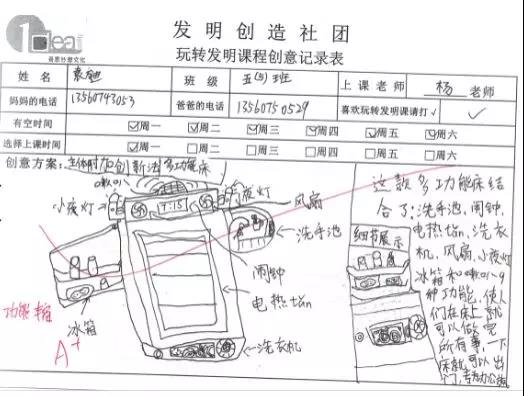 1 Ideal
善思妙想文化
发明创造社团
玩转发明课程创意记录表
姓名 袁 班级 五(5)班 上课老师 杨 老师
妈妈的电话 13560743053 爸爸的电话 13560750529 喜欢玩转发明课请打√ √
有空时间 ☑周一 ☑周二 ☑周三 ☑周四 ☑周五 ☑周六
选择上课时间 ☑周一 □周二 □周三 □周四 □周五 □周六
创意方案: 主体附加创新法 多功能床
喇叭
小夜灯
9:15
小夜灯
风扇
洗手池
闹钟
电热tǎn
洗衣机
冰箱
功能
A+
细节展示
这款多功能床结
合了:洗手池,闹钟,
电热tǎn,洗衣
机,风扇,小夜灯
冰箱和喇叭9
种功能,使人
们在床上就
可以做完
所有事,一下
床就可以出
门,